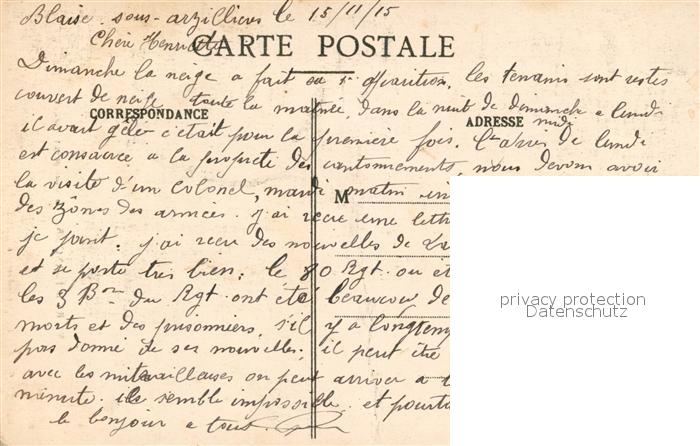 Blaise-sous-arzillieres le 15/11/15
Chère Henriette
CARTE POSTALE
Dimanche la neige a fait sa 1e apparition, les terrains sont restés
couvert de neige toute la matinée, dans la nuit de dimanche a lundi
CORRESPONDANCE
ADRESSE
il avait gélé c'était pour la première fois. L'après midi de lundi
est consacrée a la propreté des cantonnements, nous devons avoir
la visite d'un Colonel, mardi matin
M
des Zônes des armées. j'ai recu une lettr
je joint. j'ai recu des nouvelles de
et se porte très bien; le 80 Rgt. ou
les 3 Bons du Rgt. ont été beaucoup de
privacy protection
Datenschutz
morts et des prisonniers, s'il y a longtemp
pas donné de ses nouvelles. il peut être
avec les mitrailleuses on peut arriver a
minute. ile semble impossible. et pourta
le bonjour a tous.